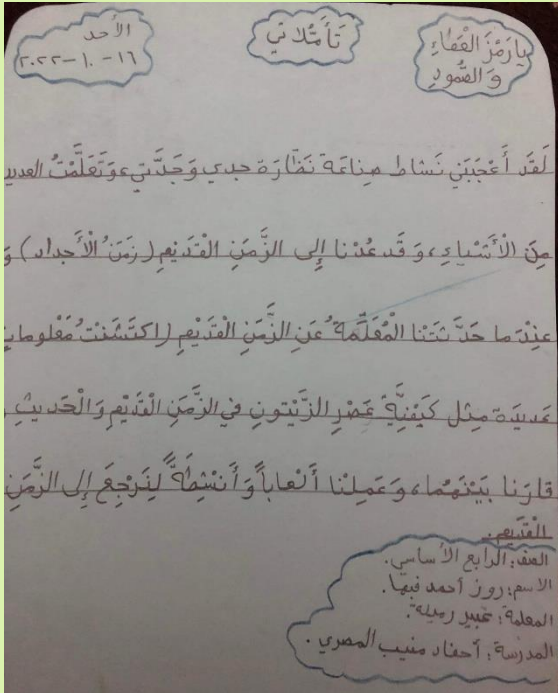 يا رَمْزَ الْعَطَاءِ
وَالصُّمُودِ
تَأَمُّلاتي
الأحد
١٦-١٠-٢٠٢٢
لَقَد أَعْجَبَني نَشاط صِناعَة نَظّارَة جدي وَجَدَّتي، وَتَعَلَّمْتُ العديد
مِنَ الْأَشْياءِ، وَقَد عُدْنا إِلى الزَّمَنِ الْقَديمِ (زَمَنُ الْأَجداد) وَ
عِنْدَما حَدَّثَتْنا الْمُعَلِّمَةُ عَنِ الزَّمَنِ الْقَديمِ (اكتَشَفْتُ مَعْلومات
عَديدَة مِثل كَيْفِيَّةِ عَصْرِ الزَّيْتونِ في الزَّمَنِ الْقَديمِ وَالْحَديثِ وَ
قارَنا بَيْنَهُما، وَعَمِلْنا أَلْعاباً وَأَنْشِطَةً لِنَرْجِعَ إِلى الزَّمَنِ
الْقَديمِ.
الصف: الرابع الأساسي.
الاسم: روز أحمد فيها.
المعلمة: عبير رميلة.
المدرسة: أحفاد منيب المصري.